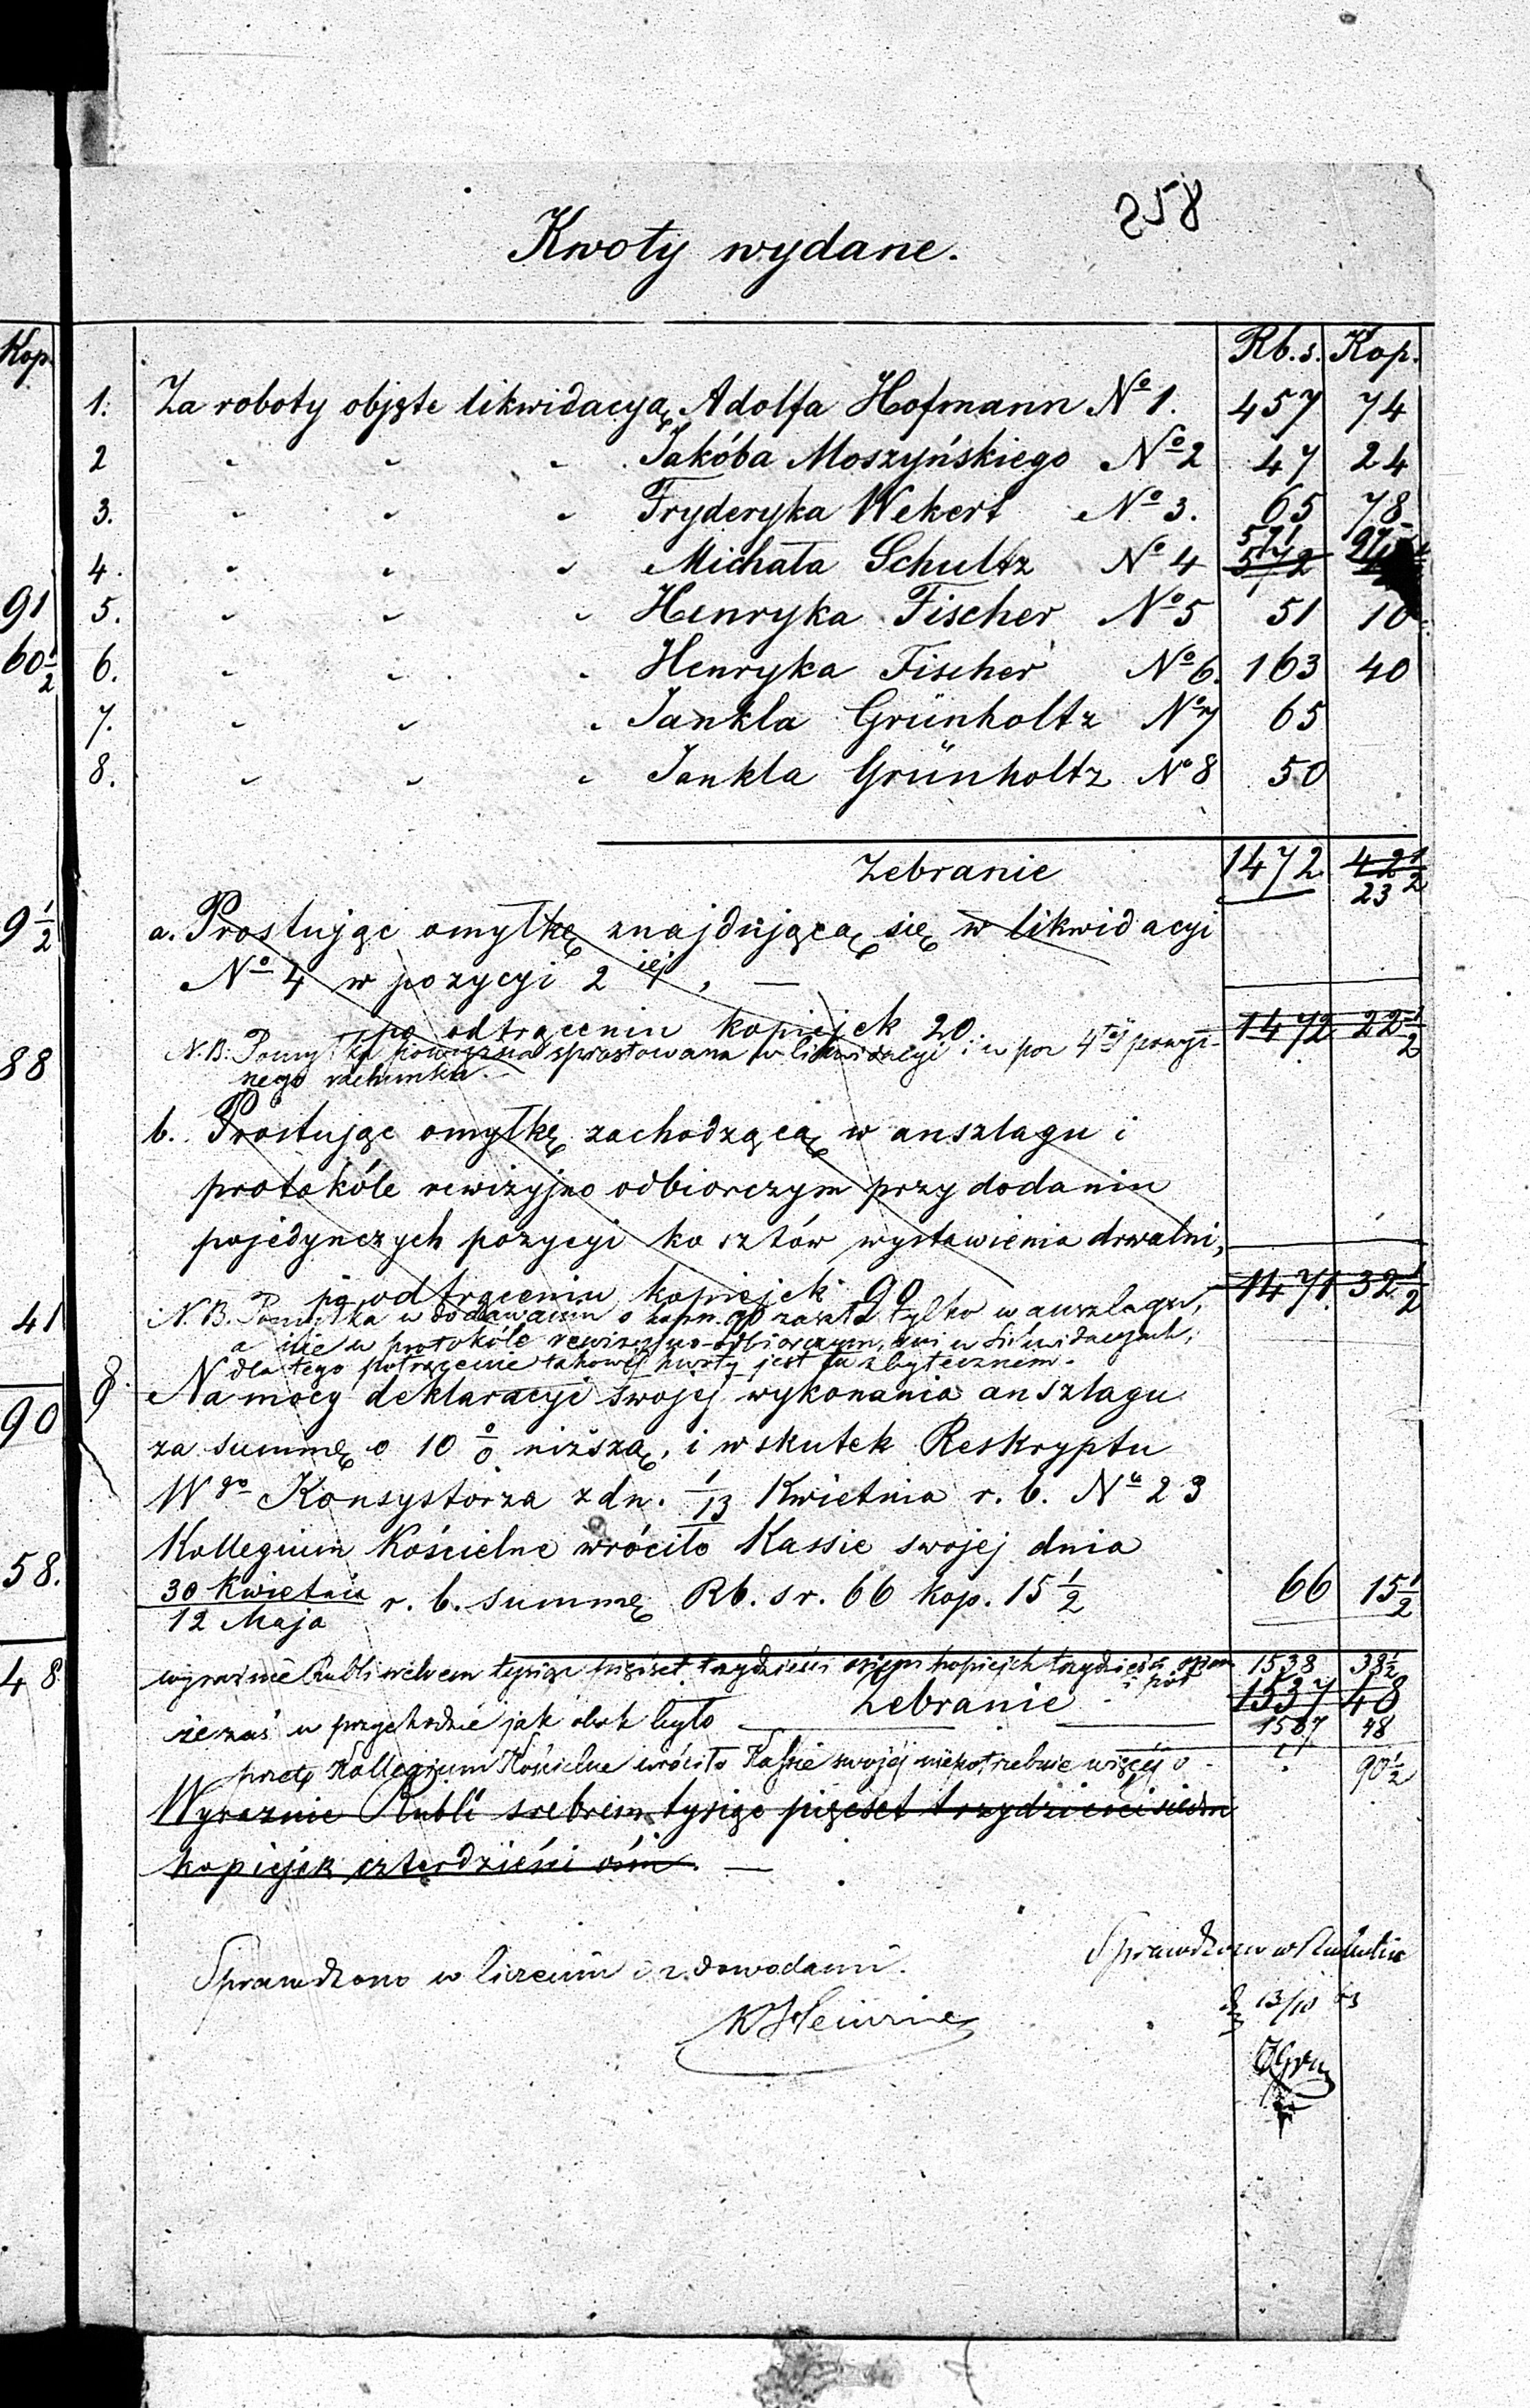 258
Kwoty wydane.
Kop. Rb. s. Kop.
1. Za roboty objęte likwidacyą Adolfa Hofmann No 1. 457 74
2 " " " Jakóba Moszyńskiego No 2 47 24
3. " " " Fryderyka Wekert No 3. 65 78
571 97
4. " " " Michała Schultz No 4 572
91 5. " " " Henryka Fischer No 5 51 10
60 1/2 6. " " " Henryka Fischer No 6. 163 40
7. " " " Jankla Grünholtz No 7 65
8. " " " Jankla Grünholtz No 8 50
Zebranie 1472 42 1/2
23
9 1/2 a. Prostując omyłkę znajdującą się w likwidacyi
No 4 w pozycyi 2 iej, —
po odtrąceniu kopiejek 20. 1472 22 1/2
N.B. Pomyłka powyższa sprostowana w likwidacyi i w poz 4tej powyż-
88 szego rachunku.
b. Prostując omyłkę zachodzącą w anszlagu i
protokóle rewizyjno odbiorczym przy dodaniu
pojedynczych pozycyi kosztów wystawienia drwalni,
po odtrąceniu kopiejek 90 1471 32 1/2
41 N.B. Pomyłka w dodawaniu o kop. 90 zaszła tylko w anszlagu,
a nie w protokóle rewizyjno-odbiorczym, ani w likwidacyach,
dla tego potrącenie takowej kwoty jest tu zbytecznem.
90 9. Na mocy deklaracyi swojej wykonania anszlagu
za summę o 10 % niższą, i wskutek Reskryptu
Wgo Konsystorza z dn. 1/13 Kwietnia r. b. No 23
Kollegium Kościelne wróciło Kassie swojej dnia
58. 30 Kwietnia/12 Maja r. b. summę Rb. sr. 66 kop. 15 1/2 66 15 1/2
48 wyraźnie Rubli srebrem tysiąc pięćset trzydzieści osiem kopiejek trzydzieści osiem i pół 1538 38 1/2
Zebranie 1537 48
że zaś w przychodzie jak obok było 1537 48
przeto Kollegium Kościelne wróciło Kassie swojéj niepotrzebnie więcéj o 90 1/2
Wyraznie Rubli srebrem tysiąc pięćset trzydzieści siedm
kopiejek czterdzieści ośm. —
Sprawdzono w liczeniu i z dowodami.
Sprawdzono w
13/10 63